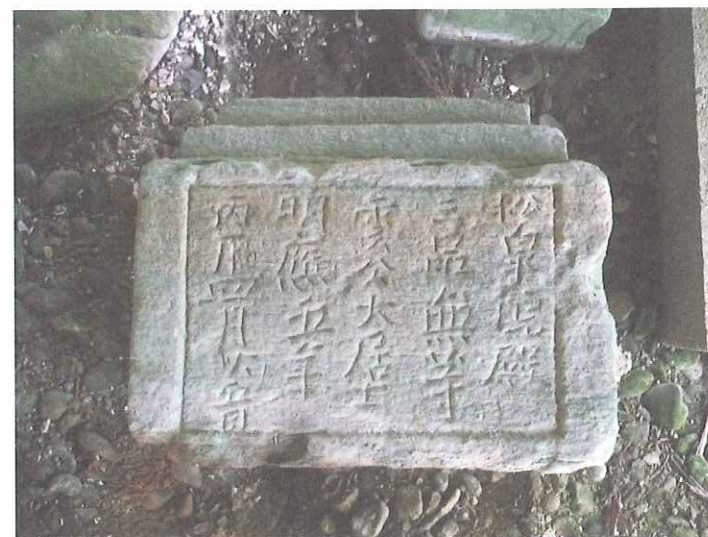 松泉院殿
三品無等
公大居士
明應五年
丙辰四月日